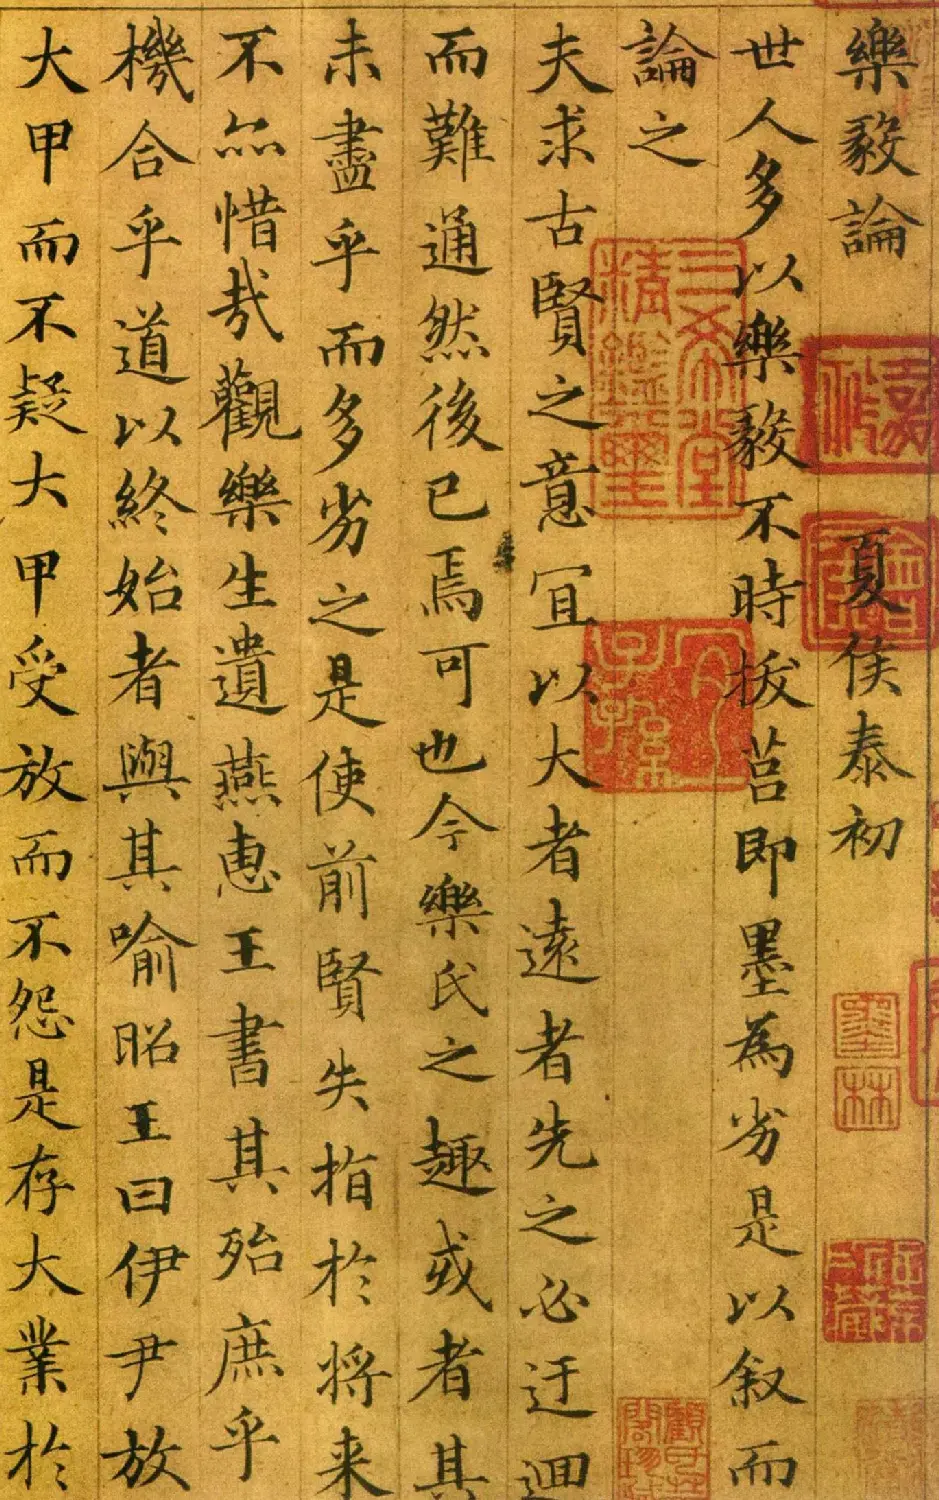 樂毅論 夏侯泰初
世人多以樂毅不時拔莒即墨為劣是以叙而
論之
夫求古賢之意宜以大者遠者先之必迂迴
而難通然後已焉可也今樂氏之趣或者其
未盡乎而多劣之是使前賢失指於將来
不亦惜哉觀樂生遺燕惠王書其殆庶乎
機合乎道以終始者與其喻昭王曰伊尹放
大甲而不疑大甲受放而不怨是存大業於
三希堂精鑑璽
宜子孫
墨林